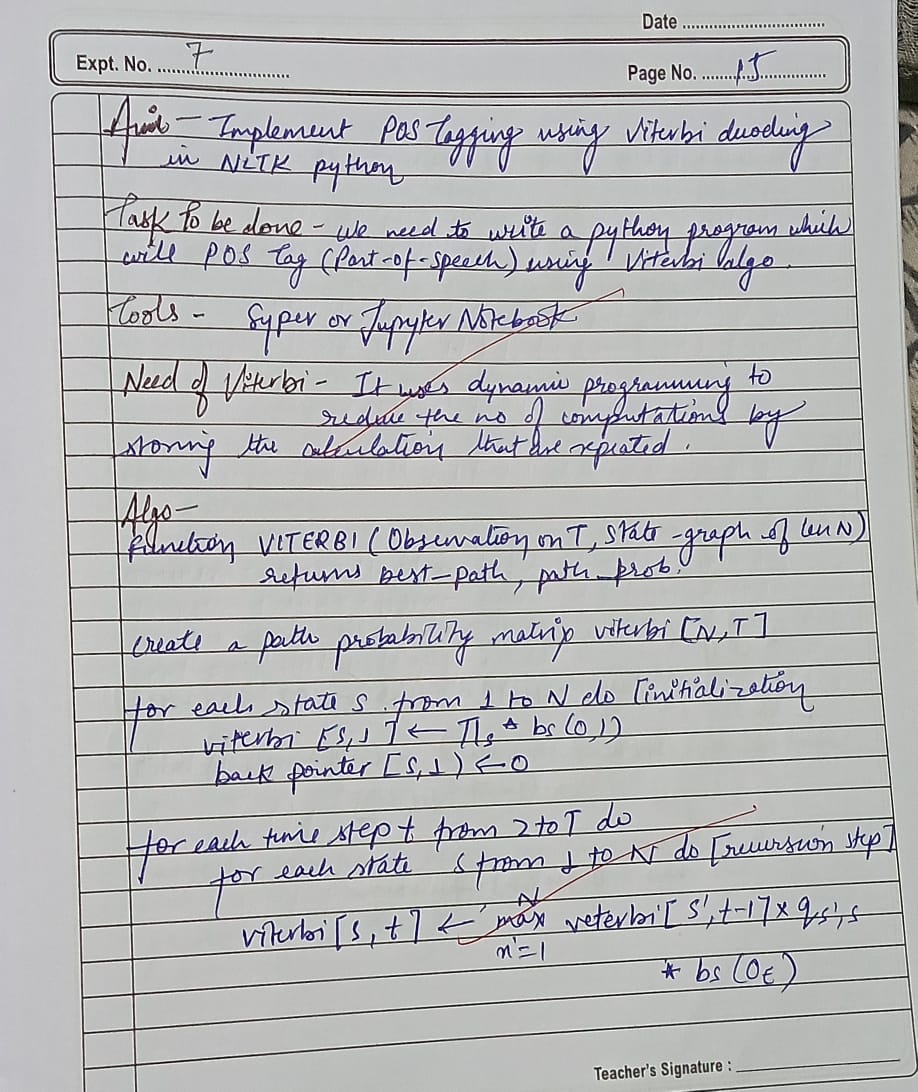 Date
Expt. No. 7
Page No. 15
Aim - Implement POS Tagging using Viterbi duoding
in NLTK python
Task to be done - we need to write a python program which
will POS Tag (Part-of-speech) using Viterbi algo.
Tools - Syper or Jupyter Notebook
Need of Viterbi - It uses dynamic programming to
reduce the no of computations by
storing the calculation that are repeated.
Algo -
function VITERBI (Observation on T, state-graph of len N)
returns best-path, path prob.
create a path probability matrix viterbi [N,T]
for each state s from 1 to N do [initialization
viterbi [s,1] ← πs * bs (0,1)
back pointer [s,1) ← 0
for each time step t from 2 to T do
for each state s from 1 to N do [recursion step]
N
viterbi [s,t] ← max veterbi [s',t-1] × qs',s
n'=1
* bs (Ot)
Teacher's Signature :